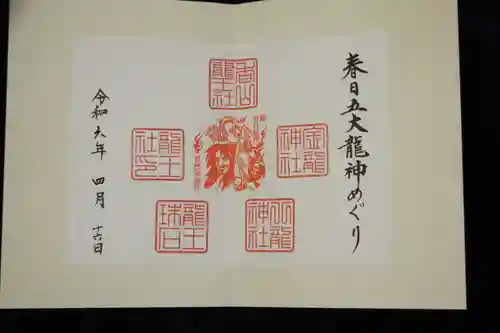 春日五大龍神めぐり
香山
龍王社
金龍
神社
八龍
神社
龍王
珠石
龍王
社印
令和六年 四月 十六日